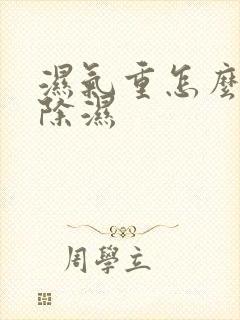 濕氣重怎麼
除濕
周學立